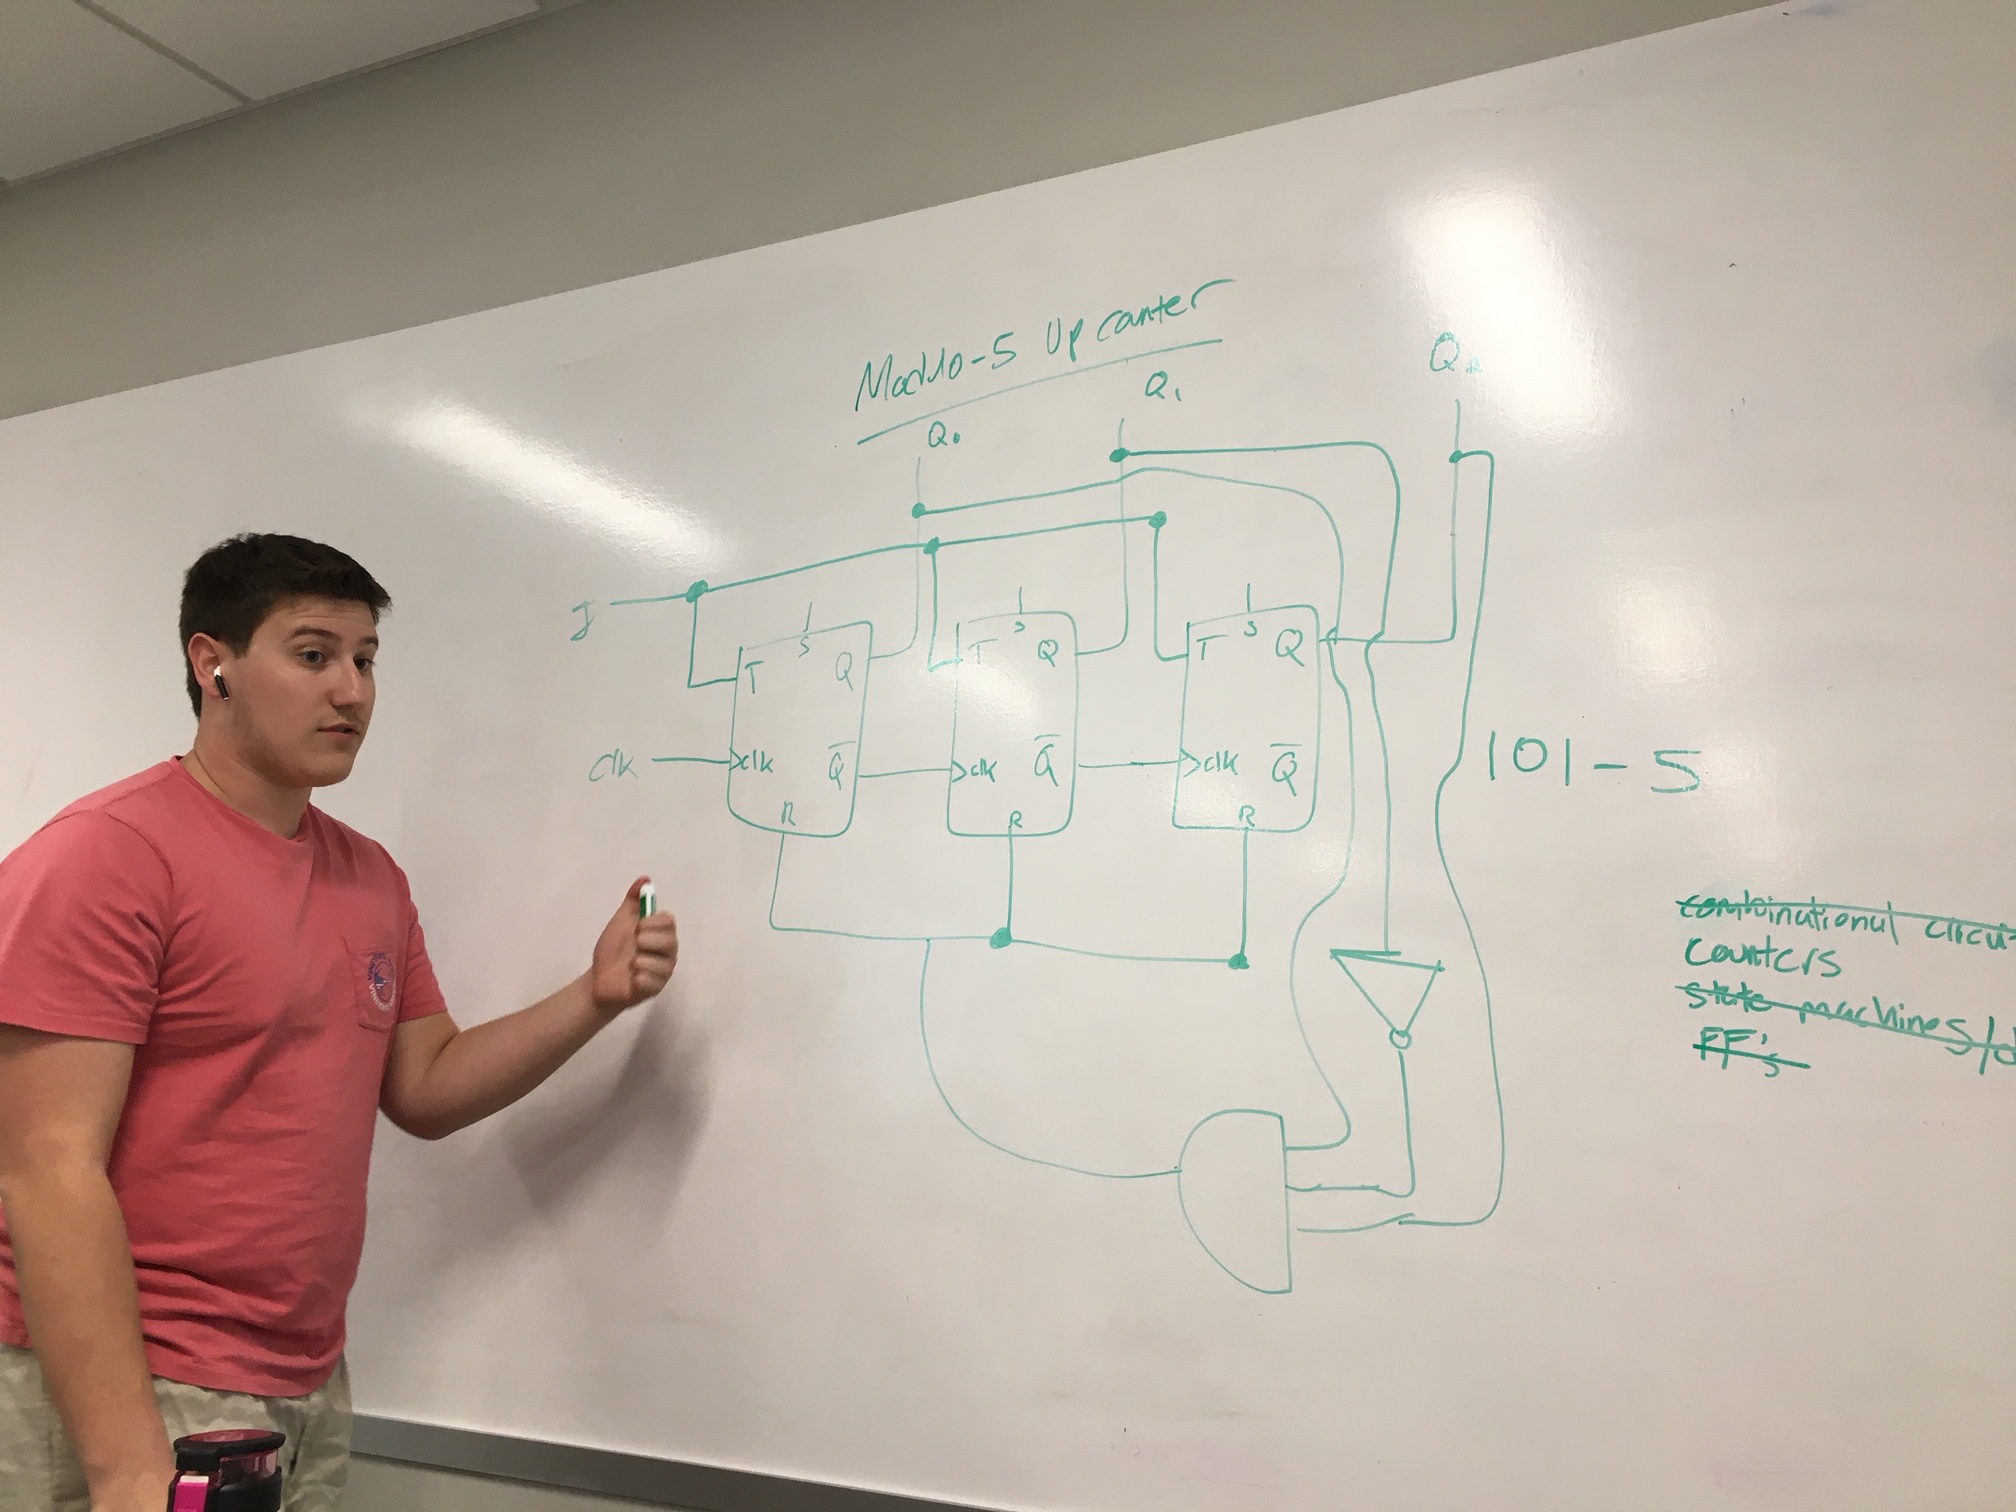 Modulo-5 Up counter
Q0
Q1
Q2
J
T
S
Q
T
S
Q
T
S
Q
clk
clk
Q̅
clk
Q̅
clk
Q̅
R
R
R
101-5
combinational circu
counters
state machines/d
FF's